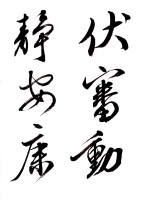 伏審動
靜安康